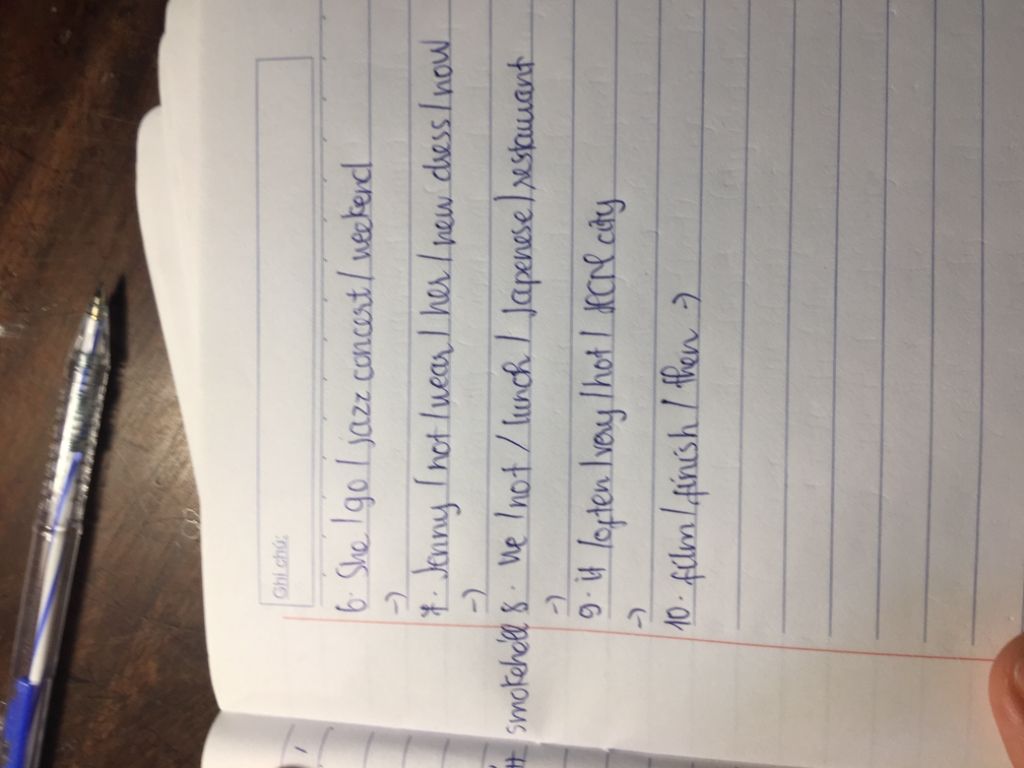 Ghi chú:
6. She / go / jazz concest / weekend
→
7. Jenny / not / wear / her / new dress / now
→
smokehell 8. We / not / lunch / Japenese / restaurant
→
9. it / often / very / hot / HCM city
→
10. film / finish / then →